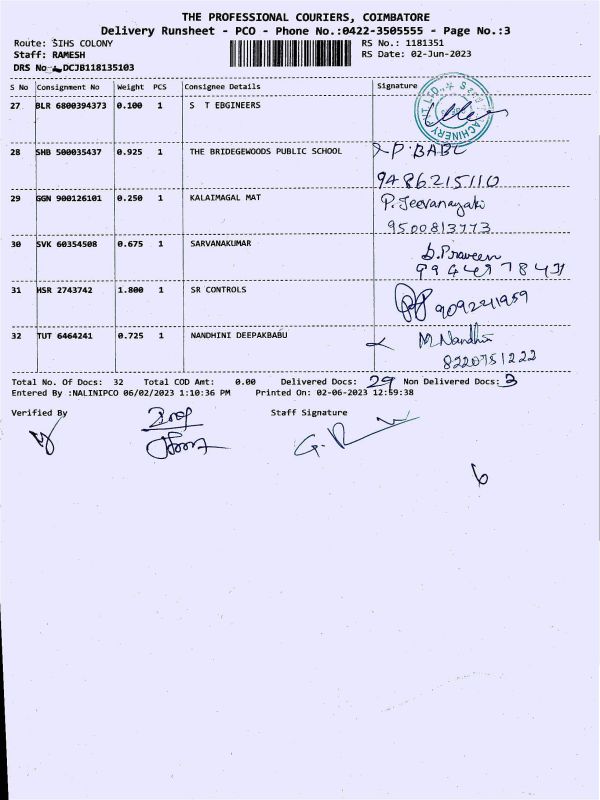 THE PROFESSIONAL COURIERS, COIMBATORE
Delivery Runsheet - PCO - Phone No.:0422-3505555 - Page No.:3
Route: SIHS COLONY
RS No.: 1181351
Staff: RAMESH
RS Date: 02-Jun-2023
DRS No DCJB118135103
S No Consignment No Weight PCS Consignee Details Signature
27 BLR 6800394373 0.100 1 S T EBGINEERS
28 SHB 500035437 0.925 1 THE BRIDEGEWOODS PUBLIC SCHOOL P. BABU
9486215110
29 GGN 900126101 0.250 1 KALAIMAGAL MAT P. Jeevanayaki
9500813773
30 SVK 60354508 0.675 1 SARVANAKUMAR D. Praveen
31 HSR 2743742 1.800 1 SR CONTROLS 9092241959
32 TUT 6464241 0.725 1 NANDHINI DEEPAKBABU M. Nandhini
8220751222
Total No. Of Docs: 32 Total COD Amt: 0.00 Delivered Docs: 29 Non Delivered Docs: 3
Entered By :NALINIPCO 06/02/2023 1:10:36 PM Printed On: 02-06-2023 12:59:38
Verified By Staff Signature